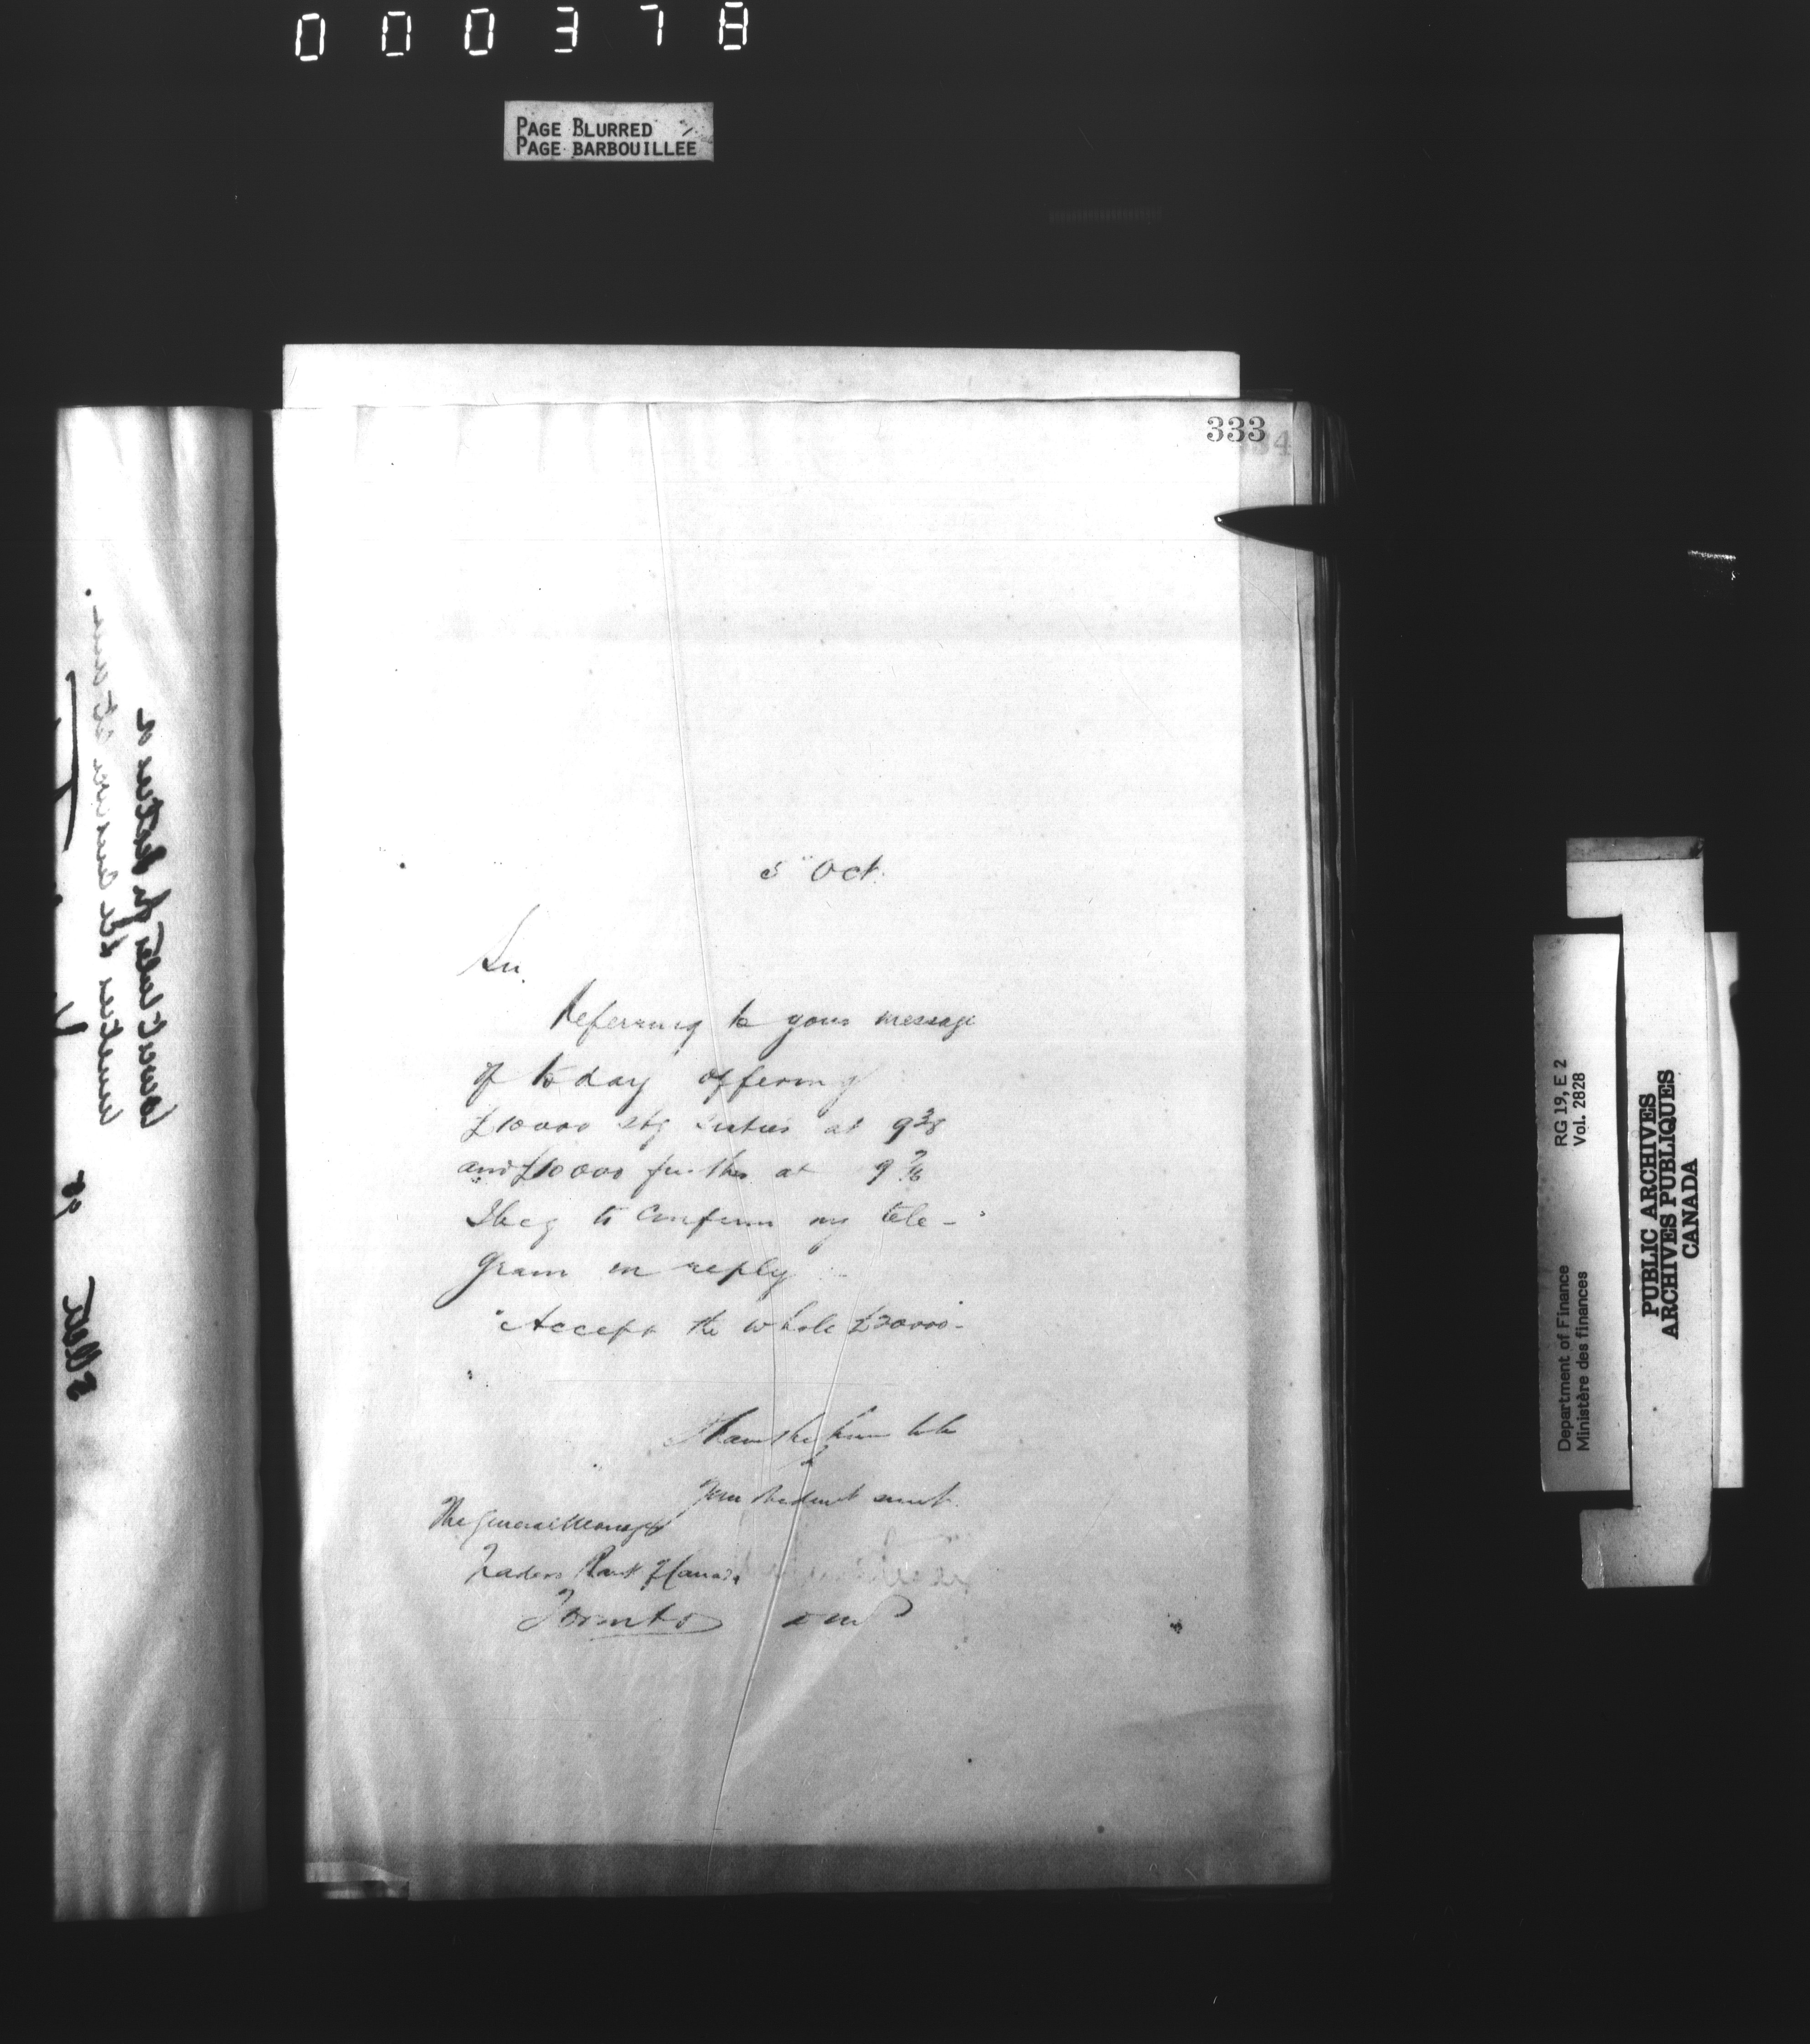 000378
PAGE BLURRED
PAGE BARBOUILLEE
333
5 Oct.
Sir.
Referring to your message
of to day offering
£10000 stg sixties at 9 3/8
and £10000 further at 9 7/16
I beg to confirm my tele-
gram in reply
"Accept the whole £20000-"
I have the honor to be
Your obedient servt.
The General Manager
Traders Bank of Canada
Toronto
RG 19, E 2
Vol. 2828
Department of Finance
Ministère des finances
PUBLIC ARCHIVES
ARCHIVES PUBLIQUES
CANADA